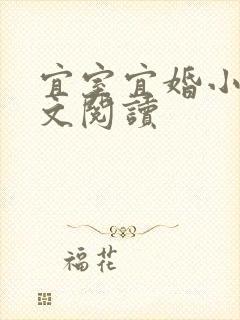 宜室宜婚小
文閱讀
福花